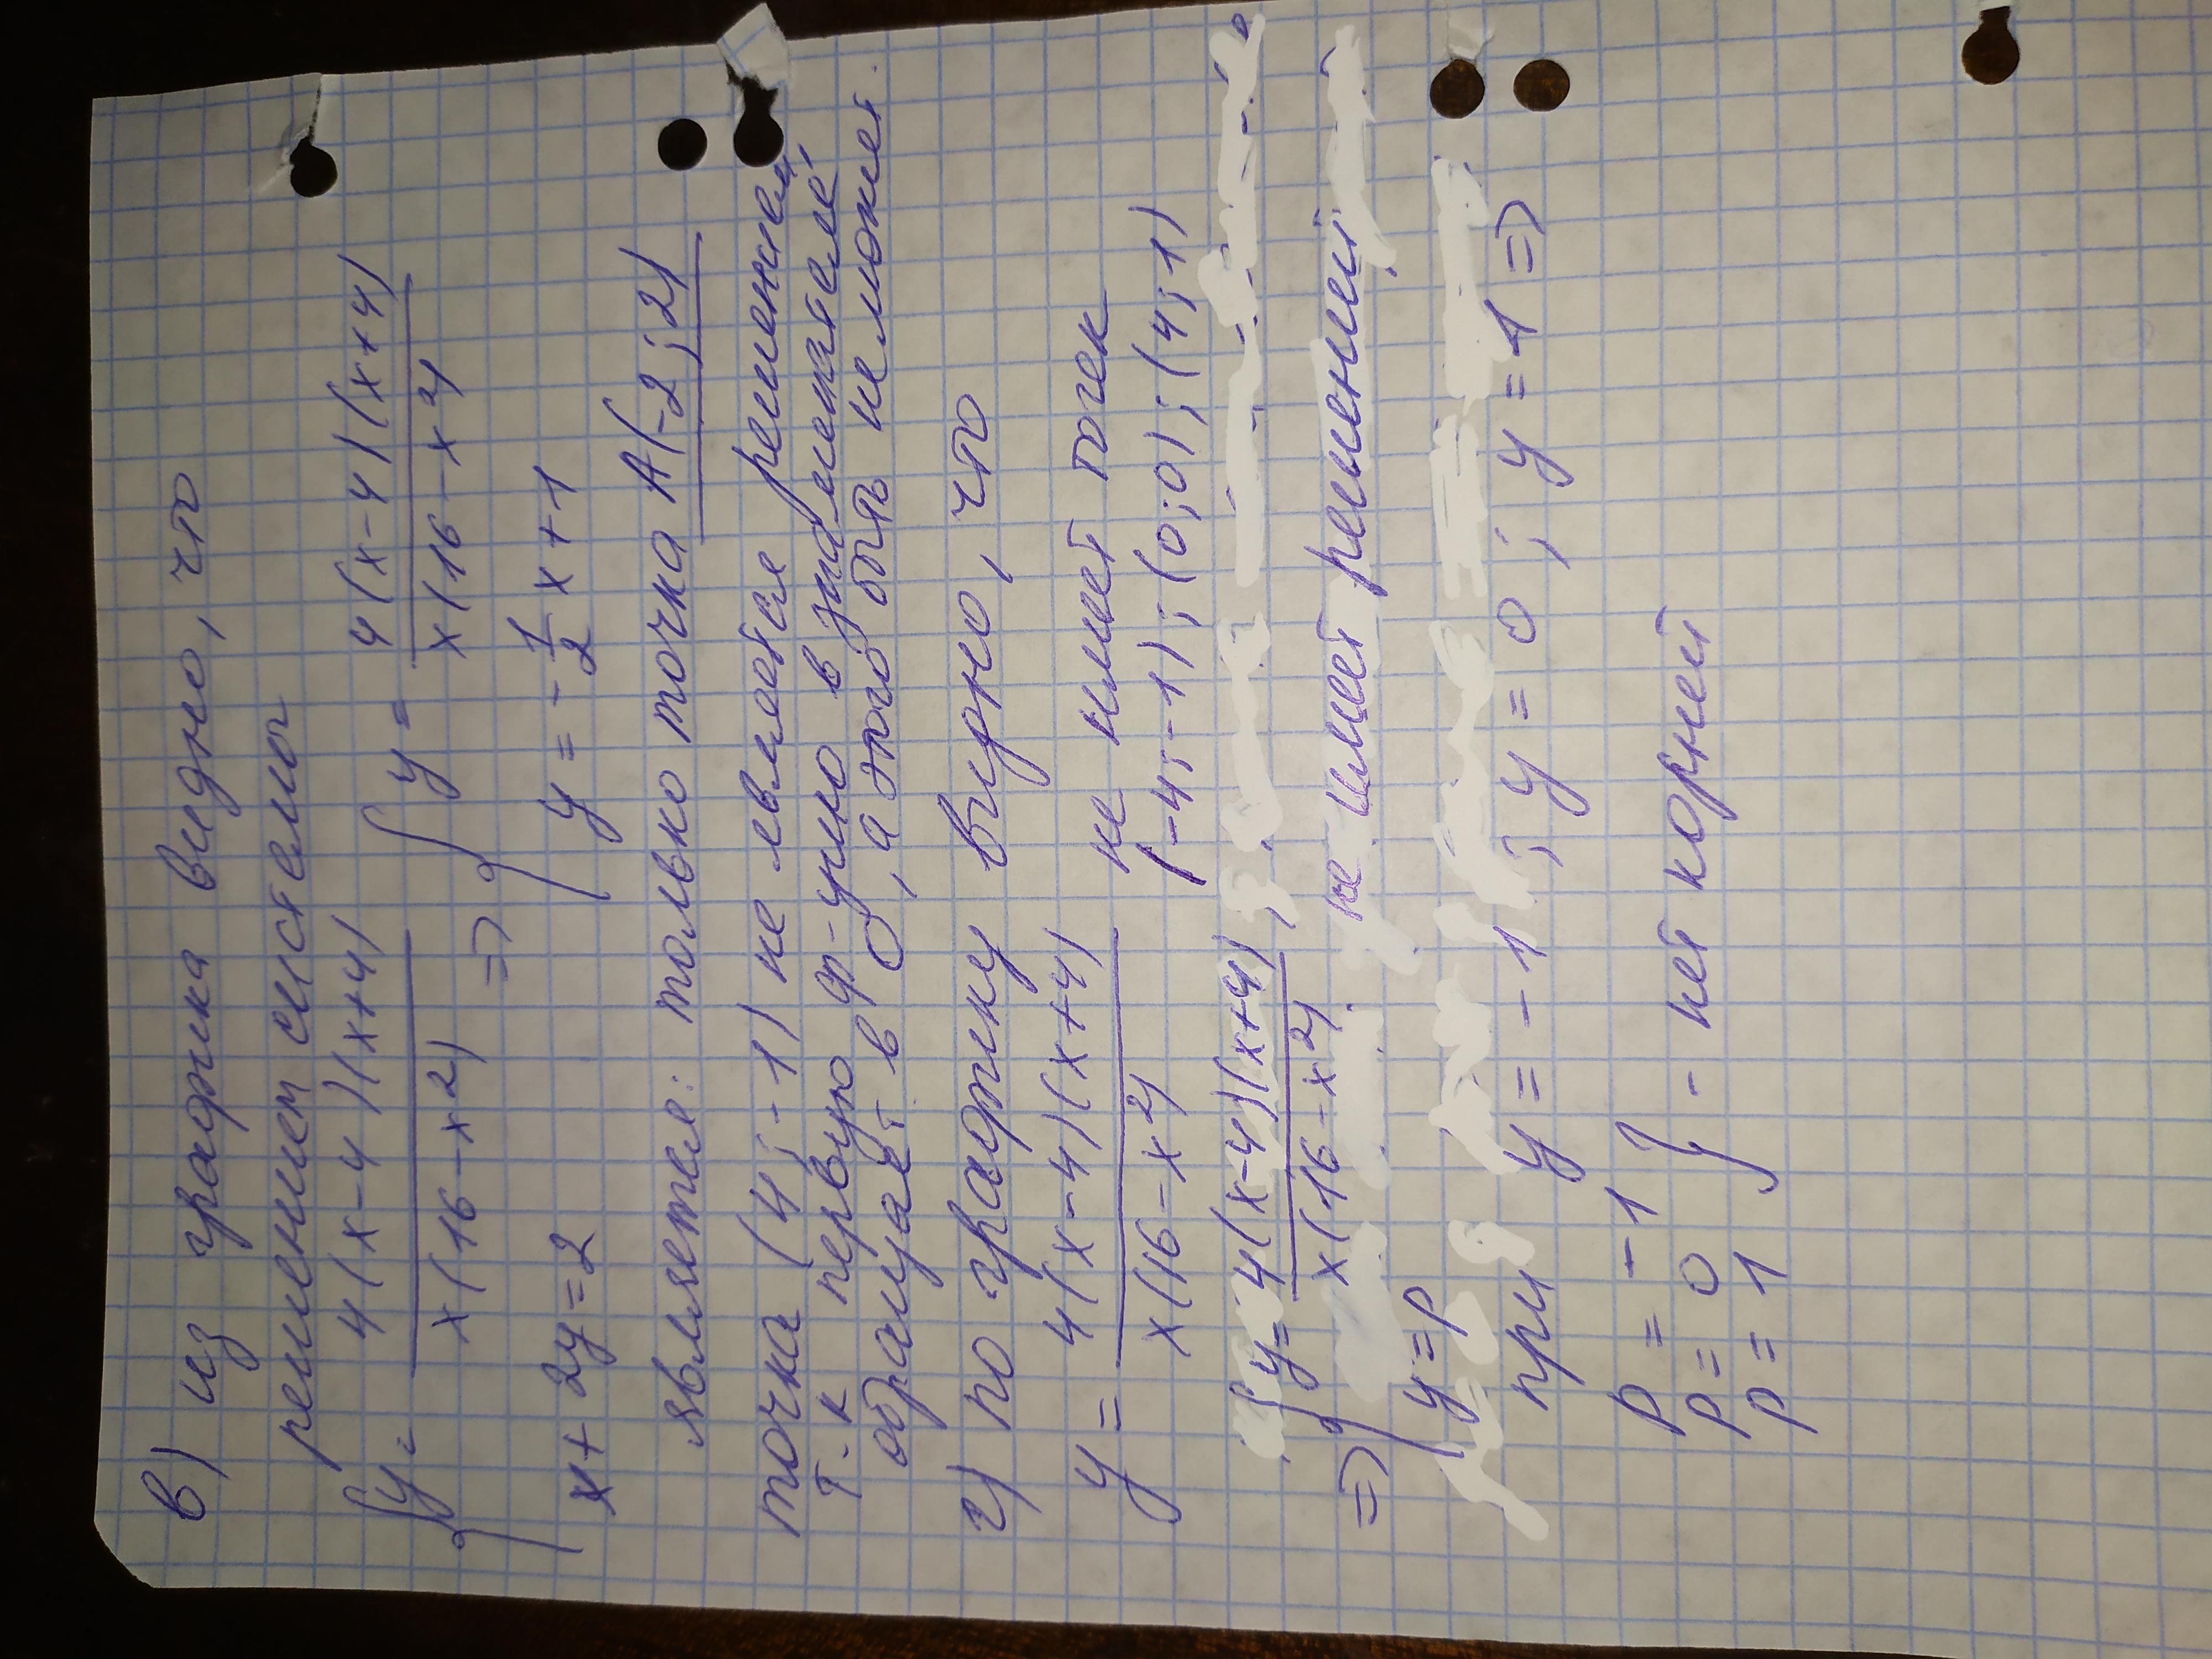 в) из графика видно, что
решением системы
{ y = 4(x-4)(x+4) / x(16-x²) => { y = 4(x-4)(x+4) / x(16-x²)
x + 2y = 2 y = -1/2 x + 1
является: только точка A(-2; 2)
точка (4; -1) не евляется решением,
т.к первую ф-учию в знаменателе
обращает в 0, а этого быть не может.
г) по графику видно, что
y = 4(x-4)(x+4) / x(16-x²) не имеет точек (-4; -1); (0; 0); (4; 1)
=> { y = 4(x-4)(x+4) / x(16-x²), не имеет решений
y = p
при y = -1; y = 0; y = 1 =>
p = -1
p = 0 } - нет корней
p = 1